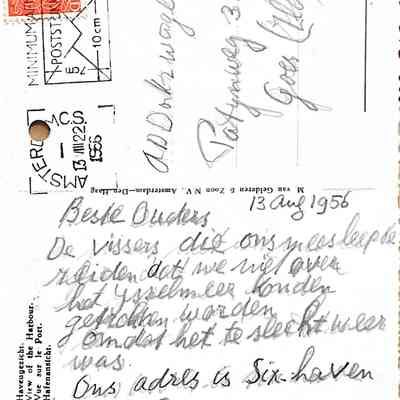 MINIMUM
POSTST
10cm
AMSTERD
C.S.
13 VIII 22
1956
AD Dokzwage
Patijnweg 3
Goes (Zld
M van Gelderen & Zoon N.V. Amsterdam-Den Haag
13 aug 1956
Beste Ouders
De vissers die ons meesleepte
zeiden dat we nie over
het Ysselmeer konden
getrokken worden
omdat het te slecht weer
was.
Ons adres is Six-haven
Havengezicht.
View of the Harbour.
Vue sur le Port.
Hafenansicht.